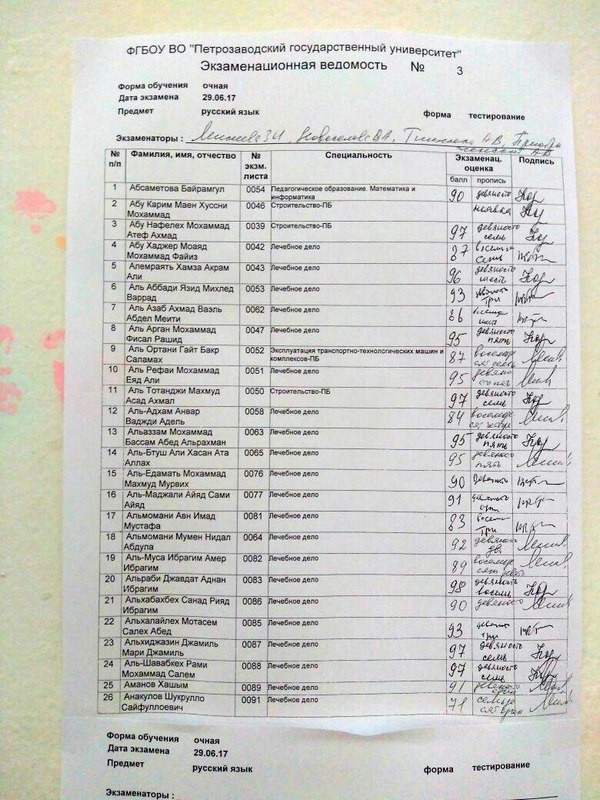 ФГБОУ ВО "Петрозаводский государственный университет"
Экзаменационная ведомость № 3
Форма обучения очная
Дата экзамена 29.06.17
Предмет русский язык форма тестирование
Экзаменаторы :
№ п/п Фамилия, имя, отчество № экзм. листа Специальность Экзаменац. оценка Подпись
балл пропись
1 Абсаметова Байрамгул 0054 Педагогическое образование. Математика и информатика 90 девяносто
2 Абу Карим Маен Хуссни Мохаммад 0046 Строительство-ПБ неявка
3 Абу Нафелех Мохаммад Атеф Ахмад 0039 Строительство-ПБ 97 девяносто семь
4 Абу Хаджер Моаяд Мохаммад Файиз 0042 Лечебное дело 87
5 Алемраять Хамза Акрам Али 0043 Лечебное дело 96 девяносто шесть
6 Аль Аббади Язид Михлед Варрад 0053 Лечебное дело 93 девяносто три
7 Аль Азаб Ахмад Ваэль Абдел Меити 0062 Лечебное дело 86
8 Аль Арган Мохаммад Фисал Рашид 0047 Лечебное дело 95 девяносто пять
9 Аль Ортани Гайт Бакр Саламах 0052 Эксплуатация транспортно-технологических машин и комплексов-ПБ 87
10 Аль Рефаи Мохаммад Еяд Али 0051 Лечебное дело 95
11 Аль Тотанджи Махмуд Асад Ахмал 0050 Строительство-ПБ 97 девяносто семь
12 Аль-Адхам Анвар Ваджди Адель 0058 Лечебное дело 84
13 Альаззам Мохаммад Бассам Абед Альрахман 0063 Лечебное дело 95 девяносто пять
14 Аль-Бтуш Али Хасан Ата Аллах 0065 Лечебное дело 95 девяносто пять
15 Аль-Едамать Мохаммад Махмуд Мурвих 0076 Лечебное дело 90 девяносто
16 Аль-Маджали Айяд Сами Айяд 0077 Лечебное дело 91
17 Альмомани Авн Имад Мустафа 0081 Лечебное дело 83
18 Альмомани Мумен Нидал Абдула 0064 Лечебное дело 92
19 Аль-Муса Ибрагим Амер Ибрагим 0082 Лечебное дело 89
20 Альраби Джавдат Аднан Ибрагим 0083 Лечебное дело 98 девяносто восемь
21 Альхабахбех Санад Рияд Ибрагим 0086 Лечебное дело 90 девяносто
22 Альхалайлех Мотасем Салех Абед 0085 Лечебное дело 93
23 Альхиджазин Джамиль Мари Джамиль 0087 Лечебное дело 97 девяносто семь
24 Аль-Шавабкех Рами Мохаммад Салем 0088 Лечебное дело 97 девяносто семь
25 Аманов Хашым 0089 Лечебное дело
26 Анакулов Шукрулло Сайфуллоевич 0091 Лечебное дело 71
Форма обучения очная
Дата экзамена 29.06.17
Предмет русский язык форма тестирование
Экзаменаторы :